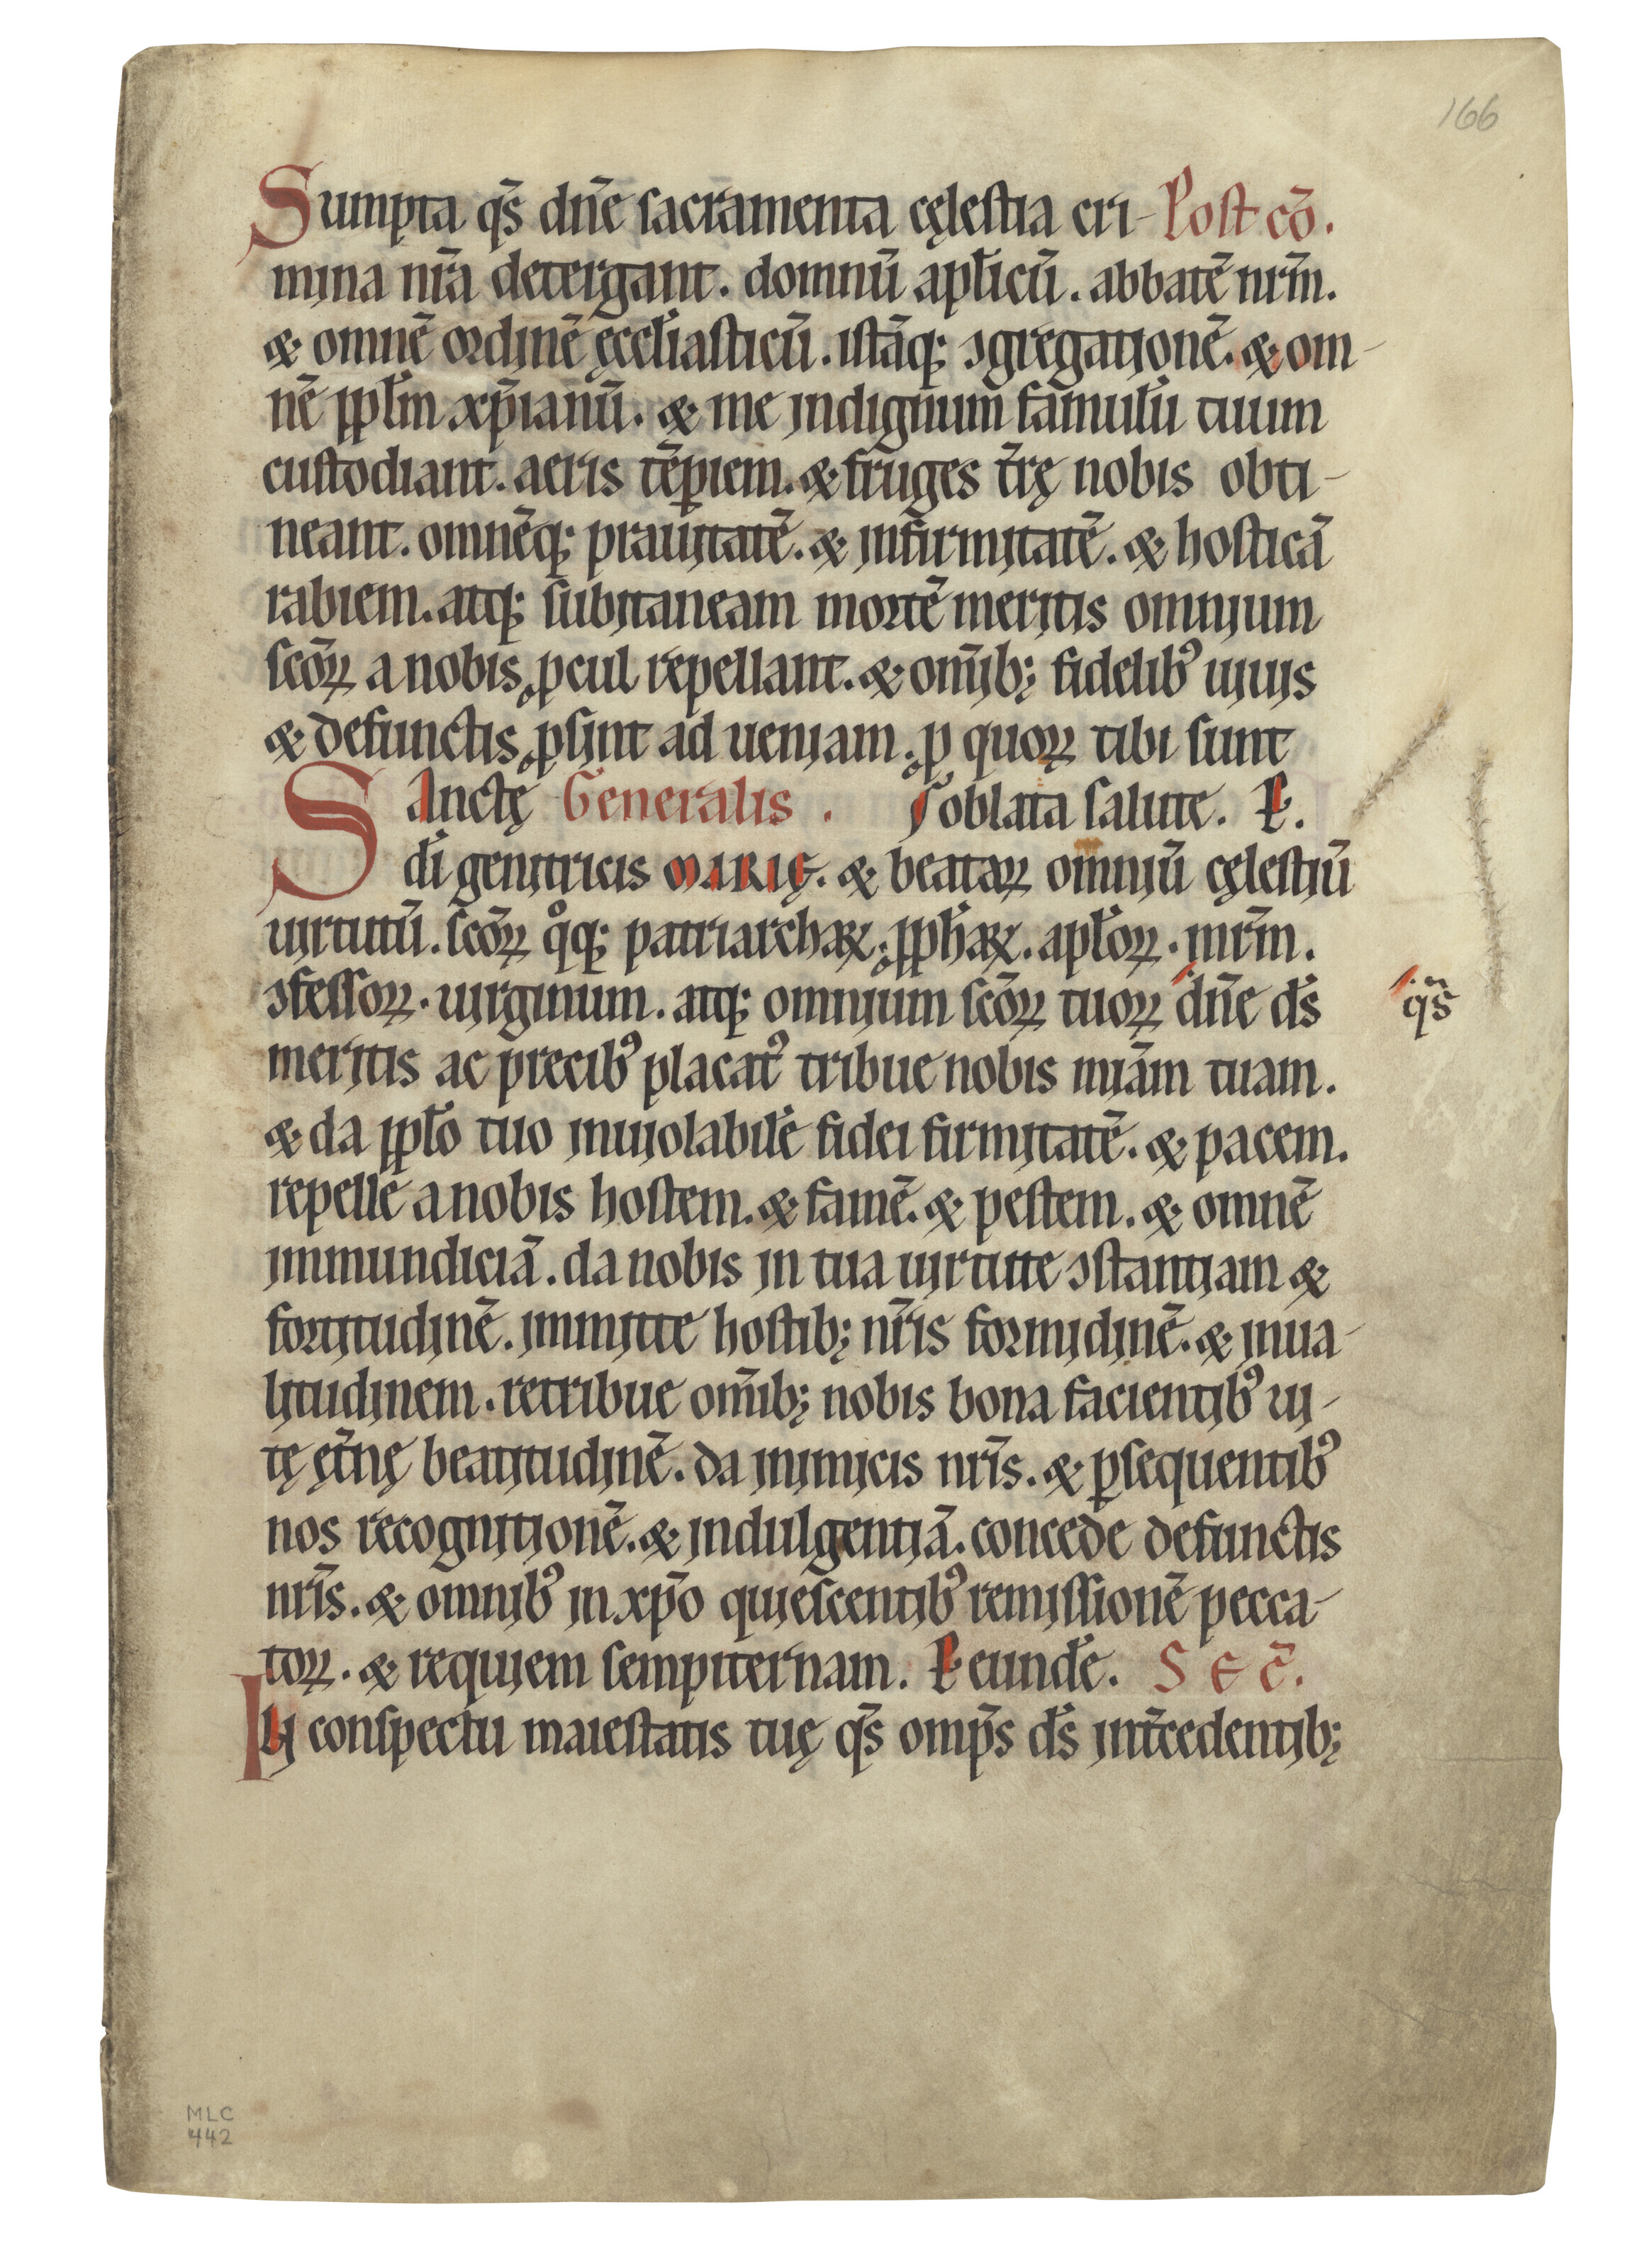 166
Sumpta qs̄ dn̄e sacram̄enta cęlestia cri- Post cō.
mina nr̄a detergant. domnū apl̄icū. abbatē nrm̄.
& omnē ordinē ęccl̄iasticū. istāq; ɔgregationē. & om-
nē ppl̄m xp̄ianū. & me indignum famul̄ū tuum
custodiant. aeris tēꝑiem. & fruges tr̄ę nobis obti-
neant. omnēq; prauitatē. & infirmitatē. & hosticā
rabiem. atq; subitaneam mortē meritis omnium
scōꝝ a nobis ꝓcul repellant. & om̄ib; fidelibꝰ uiuis
& defunctis ꝓsint ad ueniam. ꝓ quoꝝ tibi sunt
Sanctę Generalis. ſoblata salute. P.
dī genitricis MARIĘ. & beataꝝ omniū cęlestiū
uirtutū. scōꝝ qͦq; patriarchaꝝ. ꝓph̄aꝝ. apl̄oꝝ. mrm̄.
ɔfessoꝝ. uirginum. atq; omnium scōꝝ tuoꝝ dn̄e ds̄
qs̄
meritis ac precibꝰ placatꝰ tribue nobis miām tuam.
& da ppl̄o tuo inuiolabil̄e fidei firmitatē. & pacem.
repelle a nobis hostem. & famē. & pestem. & omnē
immundiciā. da nobis in tua uirtute ɔstantiam &
fortitudinē. immitte hostib; nr̄is formidinē. & inua-
litudinem. retribue om̄ib; nobis bona facientibꝰ ui-
tę ęt̄nę beatitudinē. da inimicis nr̄is. & ꝑsequentibꝰ
nos recognitionē. & indulgentiā. concede defunctis
nr̄is. & omnibꝰ in xp̄o quiescentibꝰ remissionē pecca-
toꝝ. & requiem sempiternam. P eund̄e. SEC̄.
IN conspectu maiestatis tuę qs̄ omp̄s ds̄ int̄cedentib;
MLC
442